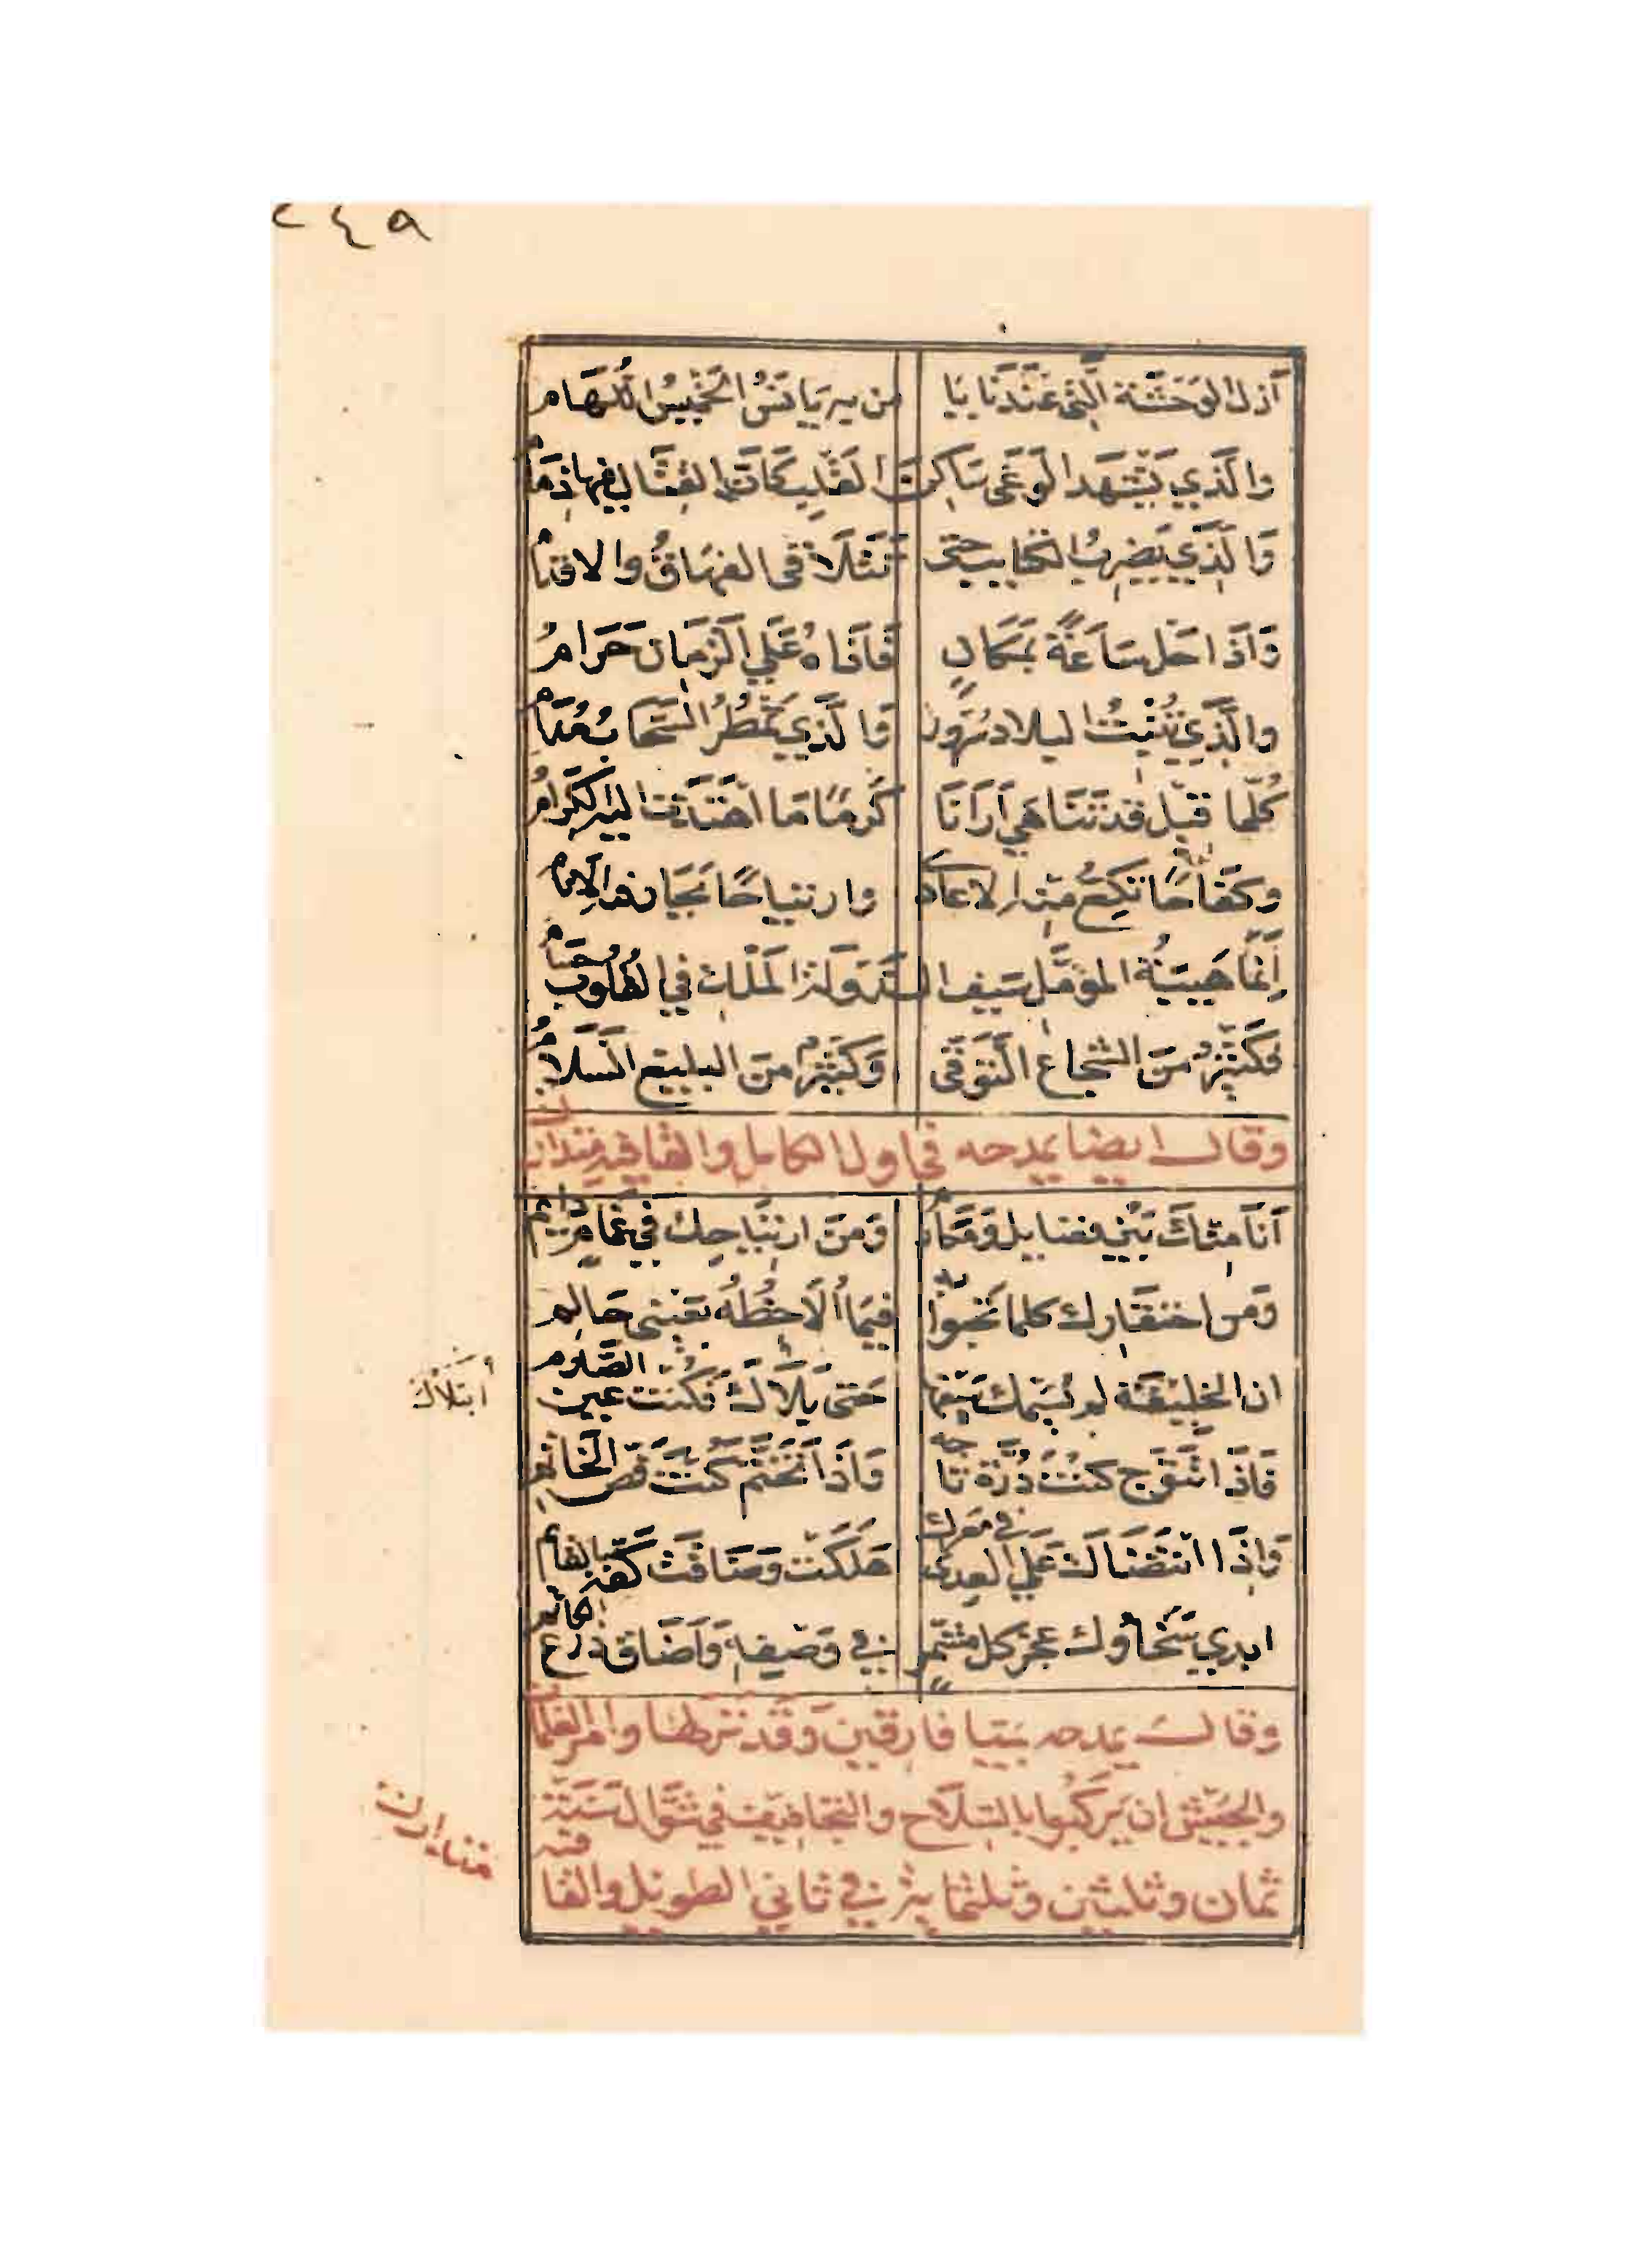 ٢٤٩
أزل الوحشة التي عندنا يا من به يانس الخميس اللهام
والذي يشهد الوغى ساكن القلب كان القتال فيها ذمام
والذي يضرب الكتايب حتى تتلاقى الفهاق والاقدام
واذا حل ساعة بمكان فاذاه على الزمان حرام
والذي تنبت البلاد سرور والذي يمطر السحاب مدام
كلما قيل قد تناهى أرانا كرما ما اهتدت اليه الكرام
وكفاحا تكع منه الاعادي وارتياحا تحار فيه الانام
إنما هيبة المؤمل سيف الدولة الملك في القلوب حسام
فكثير من الشجاع التوقي وكثير من البليغ السلام
وقال ايضا يمدحه في اول الكامل والقافية متدارك
أنا منك بين فضايل ومكارم ومن ارتياحك في غمام دايم
ومن احتقارك كلما تحبوا به فيما ألاحظه بعيني حالم
ان الخليفة لم يسمك سيفها حتى بلاك فكنت عين الصارم
أبتلاك
فاذا تتوج كنت درة تاجه واذا تختم كنت فص الخاتم
واذا انتضاك على العدى في معرك هلكت وضاقت كفه بالقايم
ابدى سخاؤك عجز كل مشمر في وصفه وأضاق ذرع الكاتم
وقال يمدحه بميا فارقين وقد نزلها وامر الغلمان
والجيش ان يركبوا بالسلاح والتجافيف في شوال سنة
ثمان وثلثين وثلثماية في ثاني الطويل والقافية
متدارك